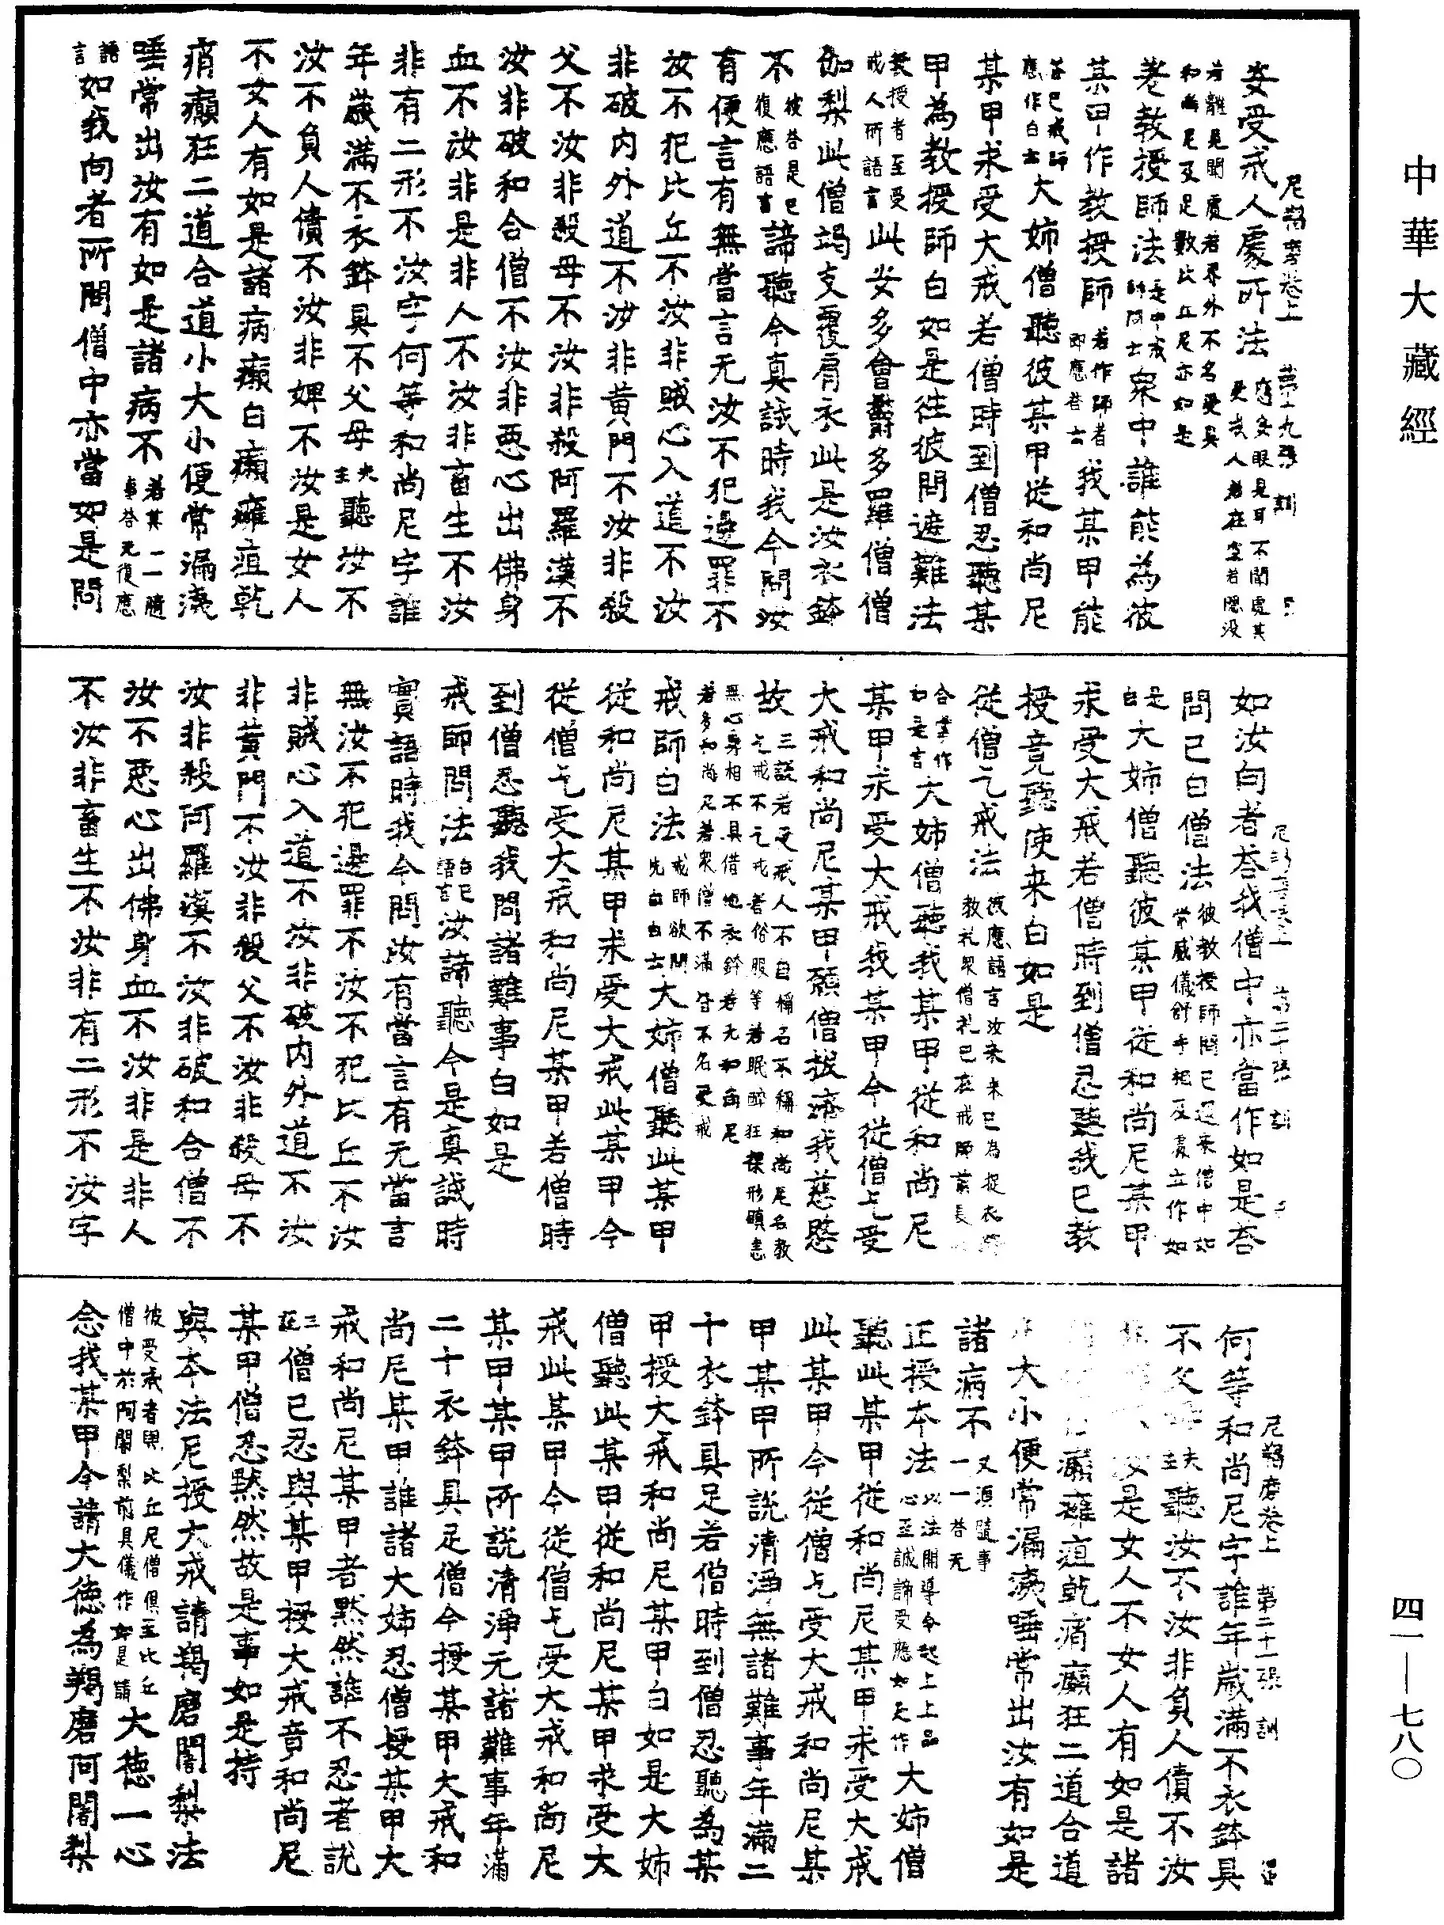 中華大藏經
四一—七八〇
尼羯磨卷上 第十九張 訓
安受戒人處所法 應安眼見耳不聞處其受戒人若在空若隱沒
若離見聞處若界外不名受具和尚尼及足數比丘尼亦如是
差教授師法 是中戒師問言 眾中誰能為彼
某甲作教授師 若作師者即應答言 我某甲能
答已戒師應作白言 大姉僧聽彼某甲從和尚尼
某甲求受大戒若僧時到僧忍聽某
甲為教授師白如是往彼問遮難法
教授者至受戒人所語言 此安多會欝多羅僧僧
伽梨此僧竭支覆肩衣此是汝衣鉢
不 彼答是已復應語言 諦聽今真誠時我今問汝
有便言有無當言无汝不犯邊罪不
汝不犯比丘不汝非賊心入道不汝
非破內外道不汝非黃門不汝非殺
父不汝非殺母不汝非殺阿羅漢不
汝非破和合僧不汝非惡心出佛身
血不汝非是非人不汝非畜生不汝
非有二形不汝字何等和尚尼字誰
年歲滿不衣鉢具不父母夫主聽汝不
汝不負人債不汝非婢不汝是女人
不女人有如是諸病癩白癩癰疽乾
痟癲狂二道合道小大小便常漏洟
唾常出汝有如是諸病不 若其一一隨事答无復應
語言 如我向者所問僧中亦當如是問
尼羯磨卷上 第二十張 訓
如汝向者答我僧中亦當作如是答
問已白僧法 彼教授師問已還來僧中如常威儀舒手相及處立作如
是白 大姉僧聽彼某甲從和尚尼某甲
求受大戒若僧時到僧忍聽我已教
授竟聽使来白如是
從僧乞戒法 彼應語言汝来来已為捉衣鉢教礼眾僧礼已在戒師前長跪
合掌作如是言 大姉僧聽我某甲從和尚尼
某甲求受大戒我某甲今從僧乞受
大戒和尚尼某甲願僧拔濟我慈愍
故 三說若受戒人不自稱名不稱和尚尼名教乞戒不乞戒者俗服等若眠醉狂裸形瞋恚
無心身相不具借他衣鉢若无和尚尼若多和尚尼若眾僧不滿皆不名受戒
戒師白法 戒師欲問先自白言 大姉僧聽此某甲
從和尚尼某甲求受大戒此某甲今
從僧乞受大戒和尚尼某甲若僧時
到僧忍聽我問諸難事白如是
戒師問法 白已語言 汝諦聽今是真誠時
實語時我今問汝有當言有无當言
無汝不犯邊罪不汝不犯比丘不汝
非賊心入道不汝非破內外道不汝
非黃門不汝非殺父不汝非殺母不
汝非殺阿羅漢不汝非破和合僧不
汝不惡心出佛身血不汝非是非人
不汝非畜生不汝非有二形不汝字
尼羯磨卷上 第二十一張 訓
何等和尚尼字誰年歲滿不衣鉢具
不父母夫主聽汝不汝非負人債不汝
汝是女人不女人有如是諸
癩癰疽乾痟癲狂二道合道
大小便常漏洟唾常出汝有如是
諸病不 又須隨事一一答无
正授本法 以法開導令起上上品心至誠諦受應如是作 大姉僧
聽此某甲從和尚尼某甲求受大戒
此某甲今從僧乞受大戒和尚尼某
甲某甲所說清淨無諸難事年滿二
十衣鉢具足若僧時到僧忍聽為某
甲授大戒和尚尼某甲白如是大姉
僧聽此某甲從和尚尼某甲求受大
戒此某甲今從僧乞受大戒和尚尼
某甲某甲所說清淨无諸難事年滿
二十衣鉢具足僧今授某甲大戒和
尚尼某甲誰諸大姉忍僧授某甲大
戒和尚尼某甲者默然誰不忍者說
三說 僧已忍與某甲授大戒竟和尚尼
某甲僧忍默然故是事如是持
與本法尼授大戒請羯磨闍梨法
彼受戒者與比丘尼僧俱至比丘僧中於阿闍梨前具儀作如是請 大德一心
念我某甲今請大德為羯磨阿闍梨